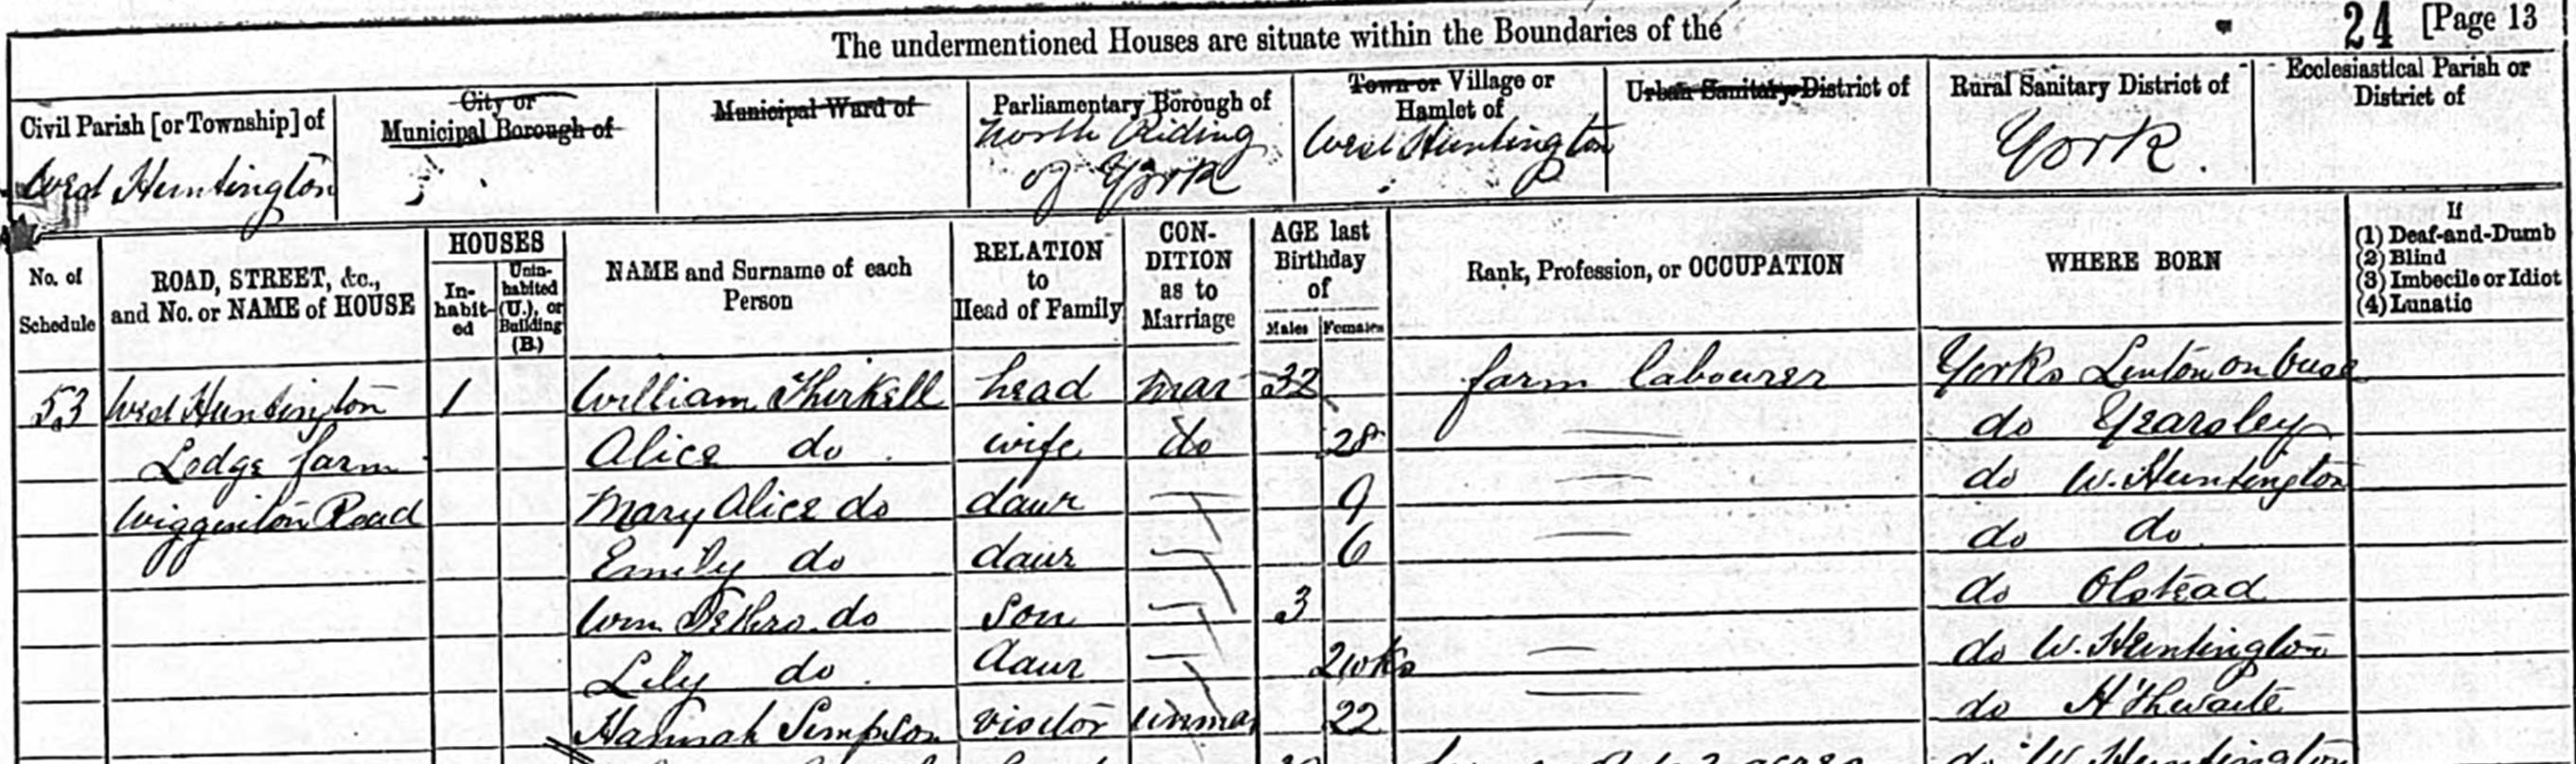 The undermentioned Houses are situate within the Boundaries of the
24 [Page 13
Civil Parish [or Township] of
City or Municipal Borough of
Municipal Ward of
Parliamentary Borough of
Town or Village or Hamlet of
Urban Sanitary District of
Rural Sanitary District of
Ecclesiastical Parish or District of
West Huntington
North Riding of York
West Huntington
York
No. of Schedule
ROAD, STREET, &c., and No. or NAME of HOUSE
HOUSES
In-habit-ed
Unin-habited (U.), or Building (B.)
NAME and Surname of each Person
RELATION to Head of Family
CON-DITION as to Marriage
AGE last Birthday of
Males Females
Rank, Profession, or OCCUPATION
WHERE BORN
If
(1) Deaf-and-Dumb
(2) Blind
(3) Imbecile or Idiot
(4) Lunatic
53 West Huntington 1 William Thirkell head mar 32 farm labourer Yorks Linton on Ouse
Lodge farm Alice do wife do 28 do Yearsley
Wigginton Road Mary Alice do daur 9 do W. Huntington
Emily do daur 6 do do
Wm do son 3 do Olstead
Lily do daur 2 wks do W. Huntington
Hannah Simpson visitor unmar 22 do H'Thwaite
acres do W. Huntington